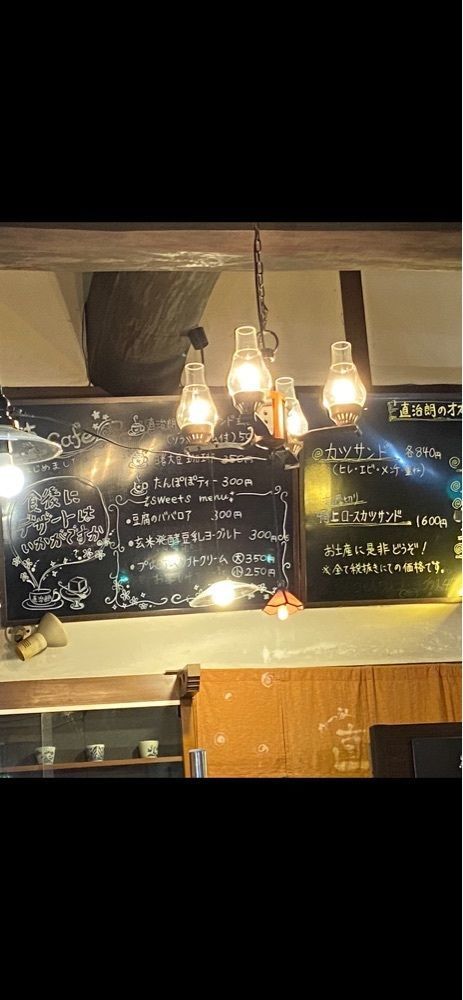 Cafe
はじめました
直治朗
食後に
デザートは
いかがですか
たんぽぽティー 300円
sweets menu
・豆腐のババロア 300円
・玄米発酵豆乳ヨーグルト 300円
大 350円
小 250円
直治朗のオス
カツサンド 各840円
(ヒレ・エビ・メンチ
上ロースカツサンド 1600円
お土産に是非どうぞ!
※全て税抜きにての価格です。
直